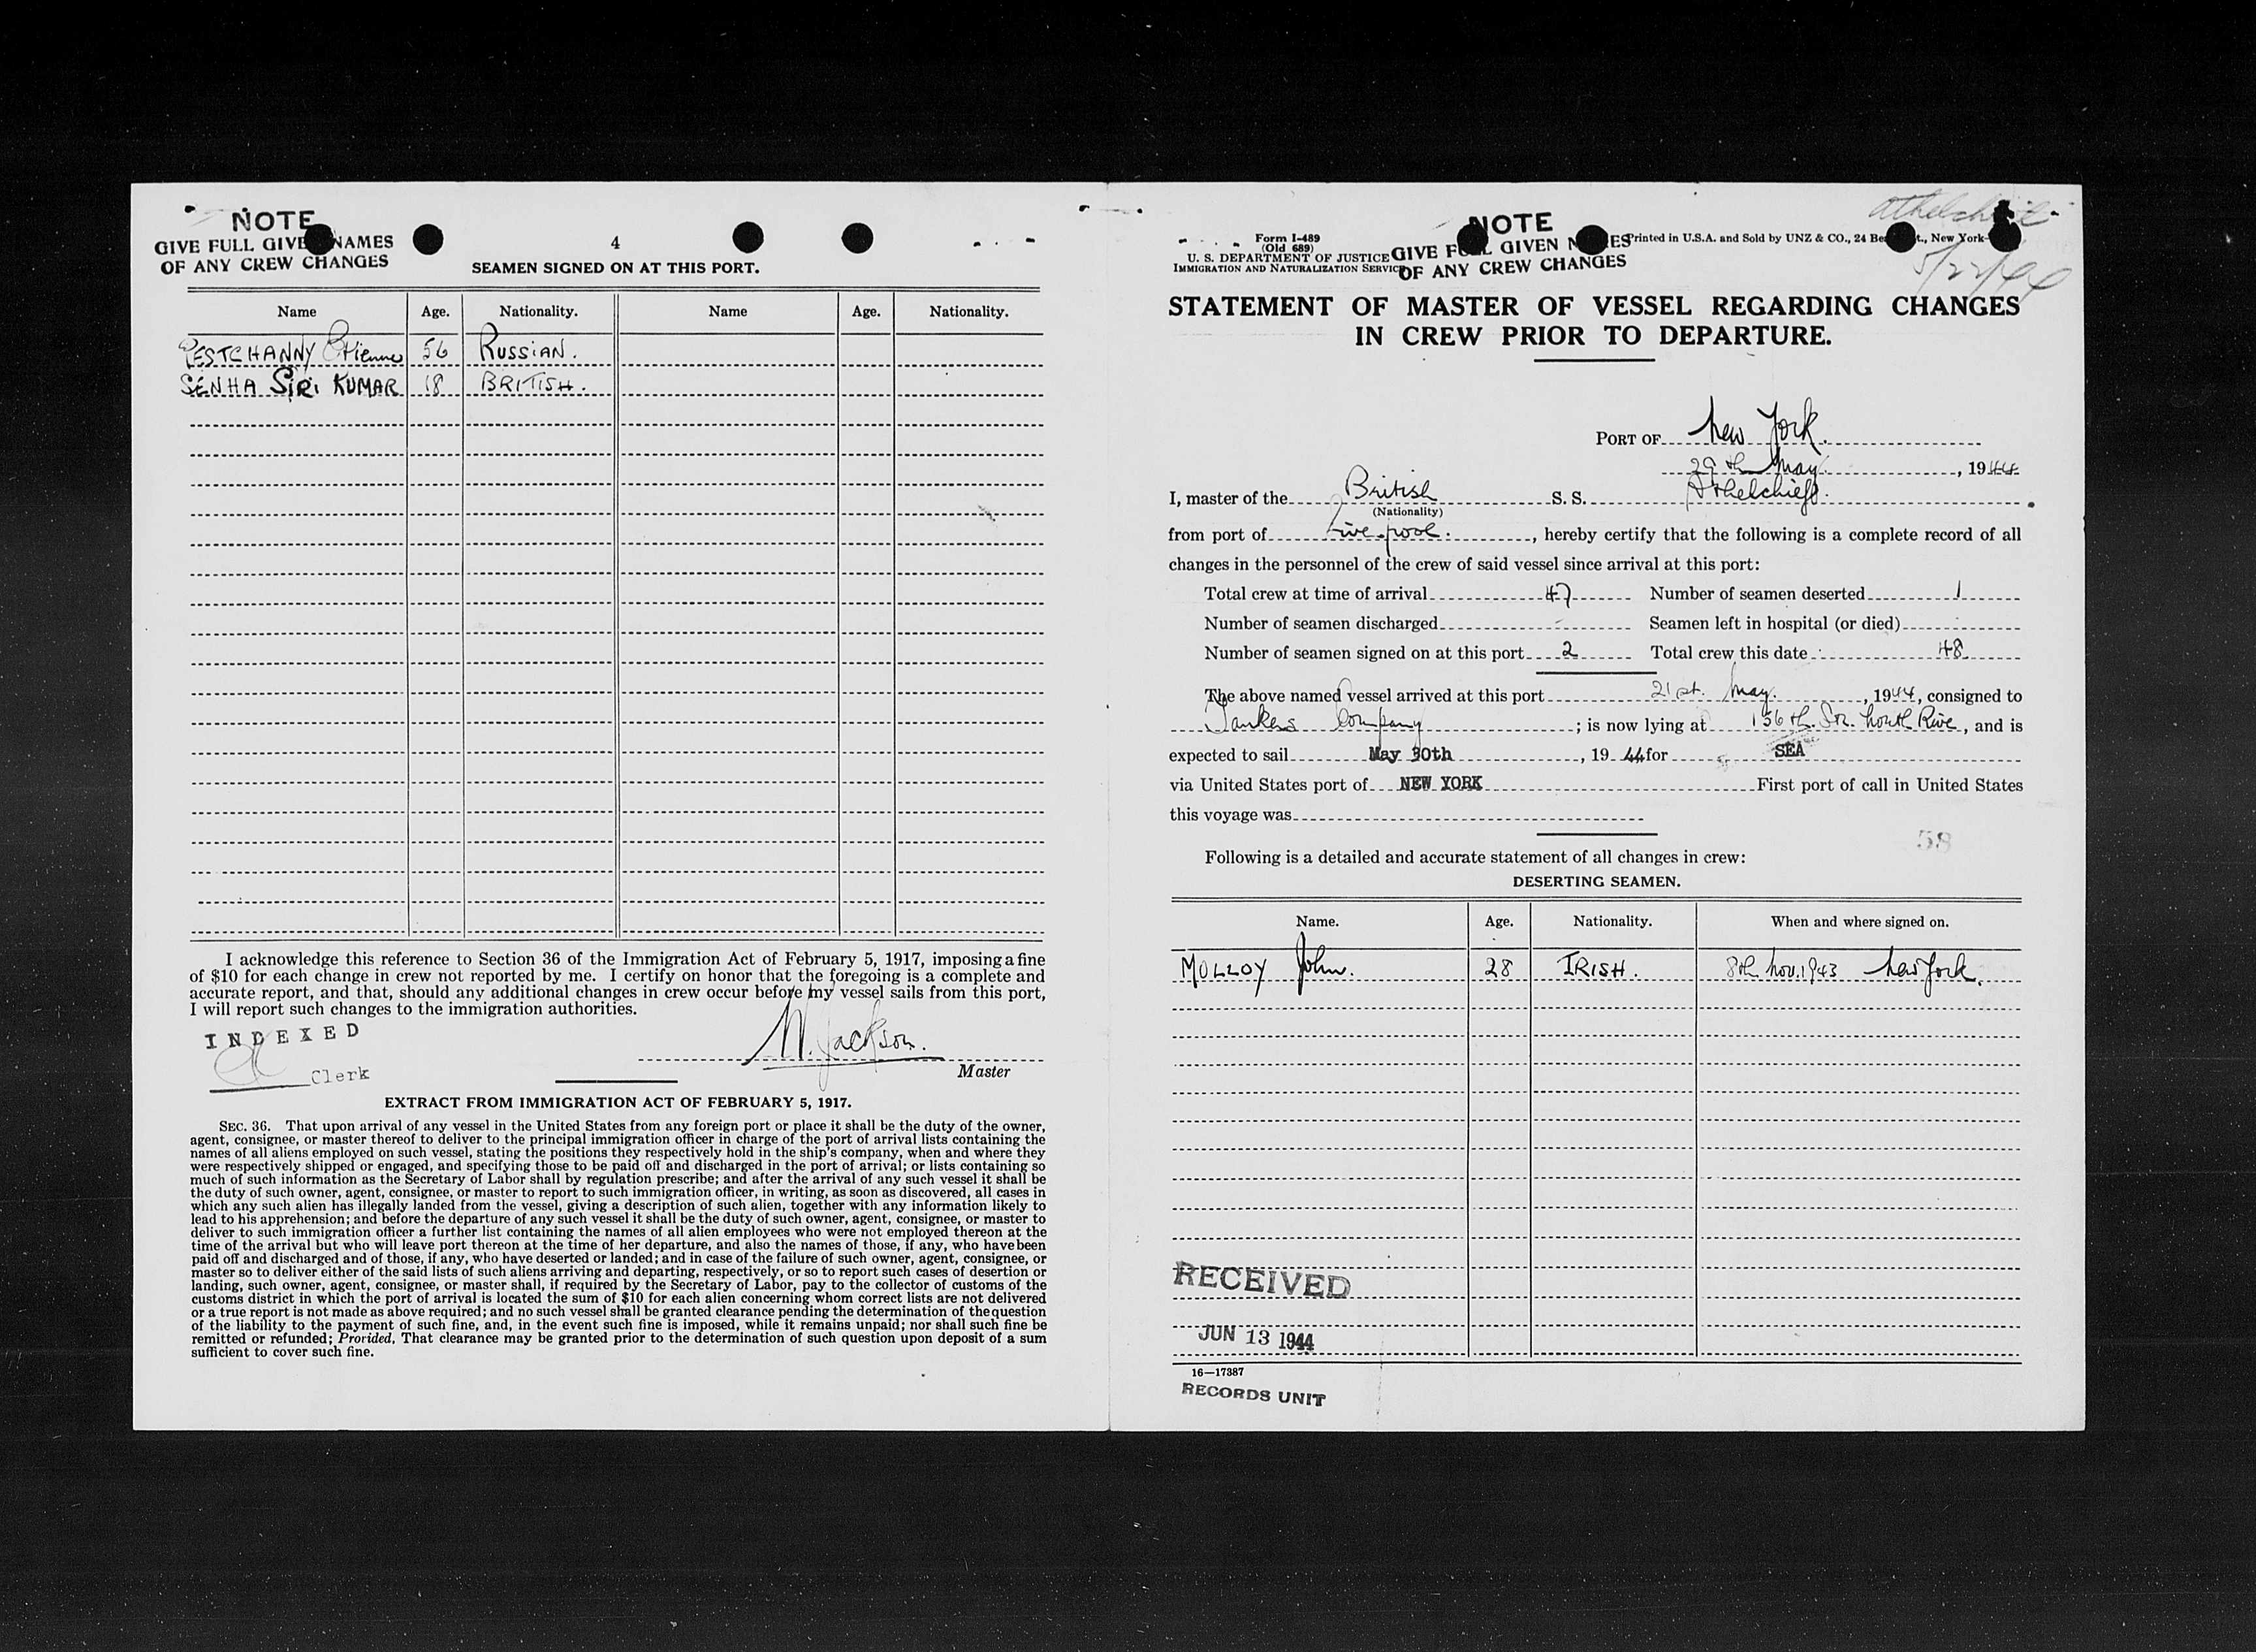 NOTE
GIVE FULL GIVEN NAMES
OF ANY CREW CHANGES
4
SEAMEN SIGNED ON AT THIS PORT.
Name Age. Nationality. Name Age. Nationality.
PESTCHANNY Etienne 56 RUSSIAN.
SENHA SIRI KUMAR 18 BRITISH.
I acknowledge this reference to Section 36 of the Immigration Act of February 5, 1917, imposing a fine
of $10 for each change in crew not reported by me. I certify on honor that the foregoing is a complete and
accurate report, and that, should any additional changes in crew occur before my vessel sails from this port,
I will report such changes to the immigration authorities.
INDEXED
W. Jackson.
Clerk
Master
EXTRACT FROM IMMIGRATION ACT OF FEBRUARY 5, 1917.
SEC. 36. That upon arrival of any vessel in the United States from any foreign port or place it shall be the duty of the owner,
agent, consignee, or master thereof to deliver to the principal immigration officer in charge of the port of arrival lists containing the
names of all aliens employed on such vessel, stating the positions they respectively hold in the ship's company, when and where they
were respectively shipped or engaged, and specifying those to be paid off and discharged in the port of arrival; or lists containing so
much of such information as the Secretary of Labor shall by regulation prescribe; and after the arrival of any such vessel it shall be
the duty of such owner, agent, consignee, or master to report to such immigration officer, in writing, as soon as discovered, all cases in
which any such alien has illegally landed from the vessel, giving a description of such alien, together with any information likely to
lead to his apprehension; and before the departure of any such vessel it shall be the duty of such owner, agent, consignee, or master to
deliver to such immigration officer a further list containing the names of all alien employees who were not employed thereon at the
time of the arrival but who will leave port thereon at the time of her departure, and also the names of those, if any, who have been
paid off and discharged and of those, if any, who have deserted or landed; and in case of the failure of such owner, agent, consignee, or
master so to deliver either of the said lists of such aliens arriving and departing, respectively, or so to report such cases of desertion or
landing, such owner, agent, consignee, or master shall, if required by the Secretary of Labor, pay to the collector of customs of the
customs district in which the port of arrival is located the sum of $10 for each alien concerning whom correct lists are not delivered
or a true report is not made as above required; and no such vessel shall be granted clearance pending the determination of the question
of the liability to the payment of such fine, and, in the event such fine is imposed, while it remains unpaid; nor shall such fine be
remitted or refunded; Provided, That clearance may be granted prior to the determination of such question upon deposit of a sum
sufficient to cover such fine.
Athelchief
5/22/44
NOTE
GIVE FULL GIVEN NAMES
OF ANY CREW CHANGES
Form I-489
(Old 689)
U. S. DEPARTMENT OF JUSTICE
IMMIGRATION AND NATURALIZATION SERVICE
Printed in U.S.A. and Sold by UNZ & CO., 24 New York
STATEMENT OF MASTER OF VESSEL REGARDING CHANGES
IN CREW PRIOR TO DEPARTURE.
PORT OF New York.
29th May, 1944
I, master of the British S. S. Athelchief.
(Nationality)
from port of Liverpool., hereby certify that the following is a complete record of all
changes in the personnel of the crew of said vessel since arrival at this port:
Total crew at time of arrival 47 Number of seamen deserted 1
Number of seamen discharged - Seamen left in hospital (or died)
Number of seamen signed on at this port 2 Total crew this date 48
The above named vessel arrived at this port 21st. May., 1944, consigned to
Tankers Company; is now lying at 156th. North Rive, and is
expected to sail May 30th, 1944 for SEA
via United States port of NEW YORK First port of call in United States
this voyage was
58
Following is a detailed and accurate statement of all changes in crew:
DESERTING SEAMEN.
Name. Age. Nationality. When and where signed on.
MOLLOY John. 28 IRISH. 8th Nov. 1943 New York.
RECEIVED
JUN 13 1944
16—17387
RECORDS UNIT